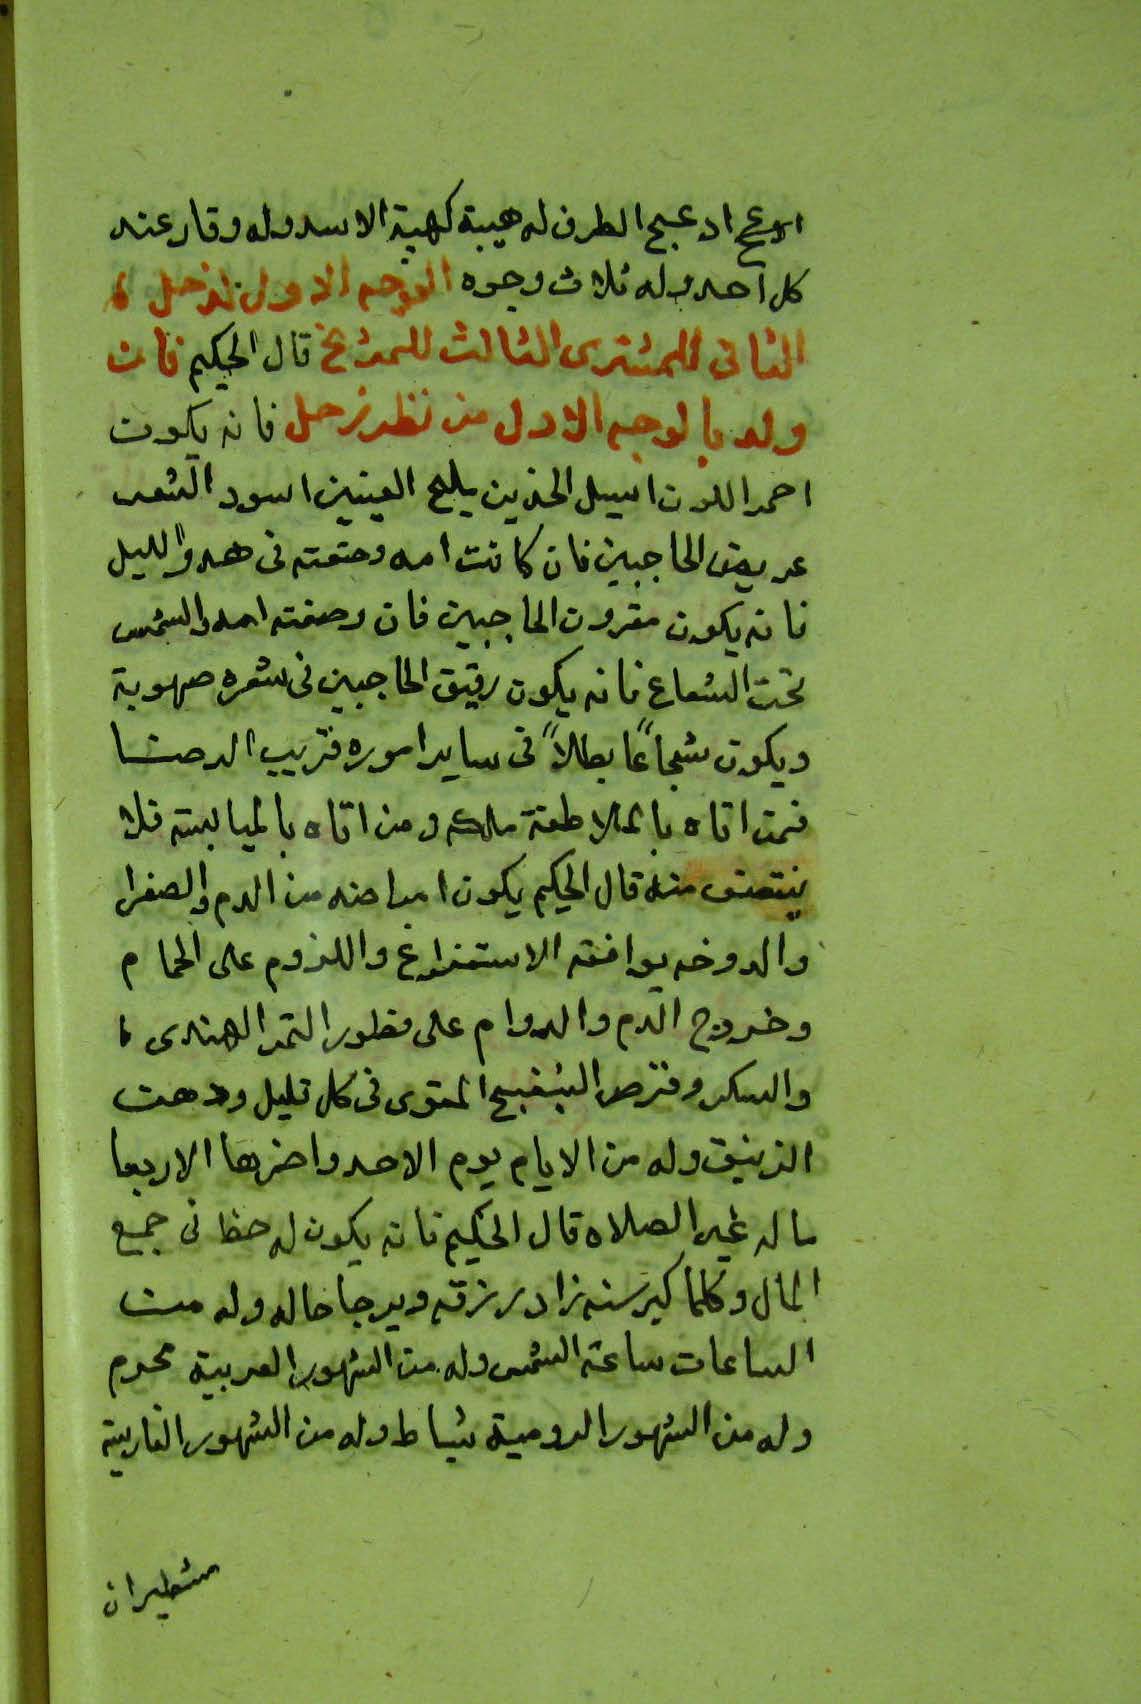 الاعج ادعج الطرف له هيبة كهيبة الاسد وله وقار عند
كل احد وله ثلاث وجوه الوجه الاول لزحل
الثانى للمشترى الثالث للمريخ قال الحكيم فان
ولد بالوجه الاول من نظر زحل فانه يكون
احمر اللون اسيل الخدين مليح العينين اسود الشعر
عريض الحاجبين فان كانت امه وضعته فى هدو الليل
فانه يكون مقرون الحاجبين فان وضعته امه والشمس
تحت الشعاع فانه يكون رقيق الحاجبين فى شعره صهوبة
ويكون شجاعًا بطلاً فى ساير اموره قريب الرضا
فمن اتاه بالملاطفة ملكه ومن اتاه فلا
منه قال الحكيم يكون امراضه من الدم والصفرا
والدوخه يوافقه الاستفراغ واللزوم على الحمام
وخروج الدم والدوام على فطور التمر الهندى
والسكر وقرص البنفسج المقوى فى كل قليل ودهن
الزنبق وله من الايام يوم الاحد واضرها الاربعا
ماله غير الصلاه قال الحكيم فانه يكون له حظا فى جمع
المال وكلما كبر سنه زاد رزقه ويرجا حاله وله من
الساعات ساعة الشمس وله من الشهور العربية محرم
وله من الشهور الرومية شباط وله من الشهور الفارسية